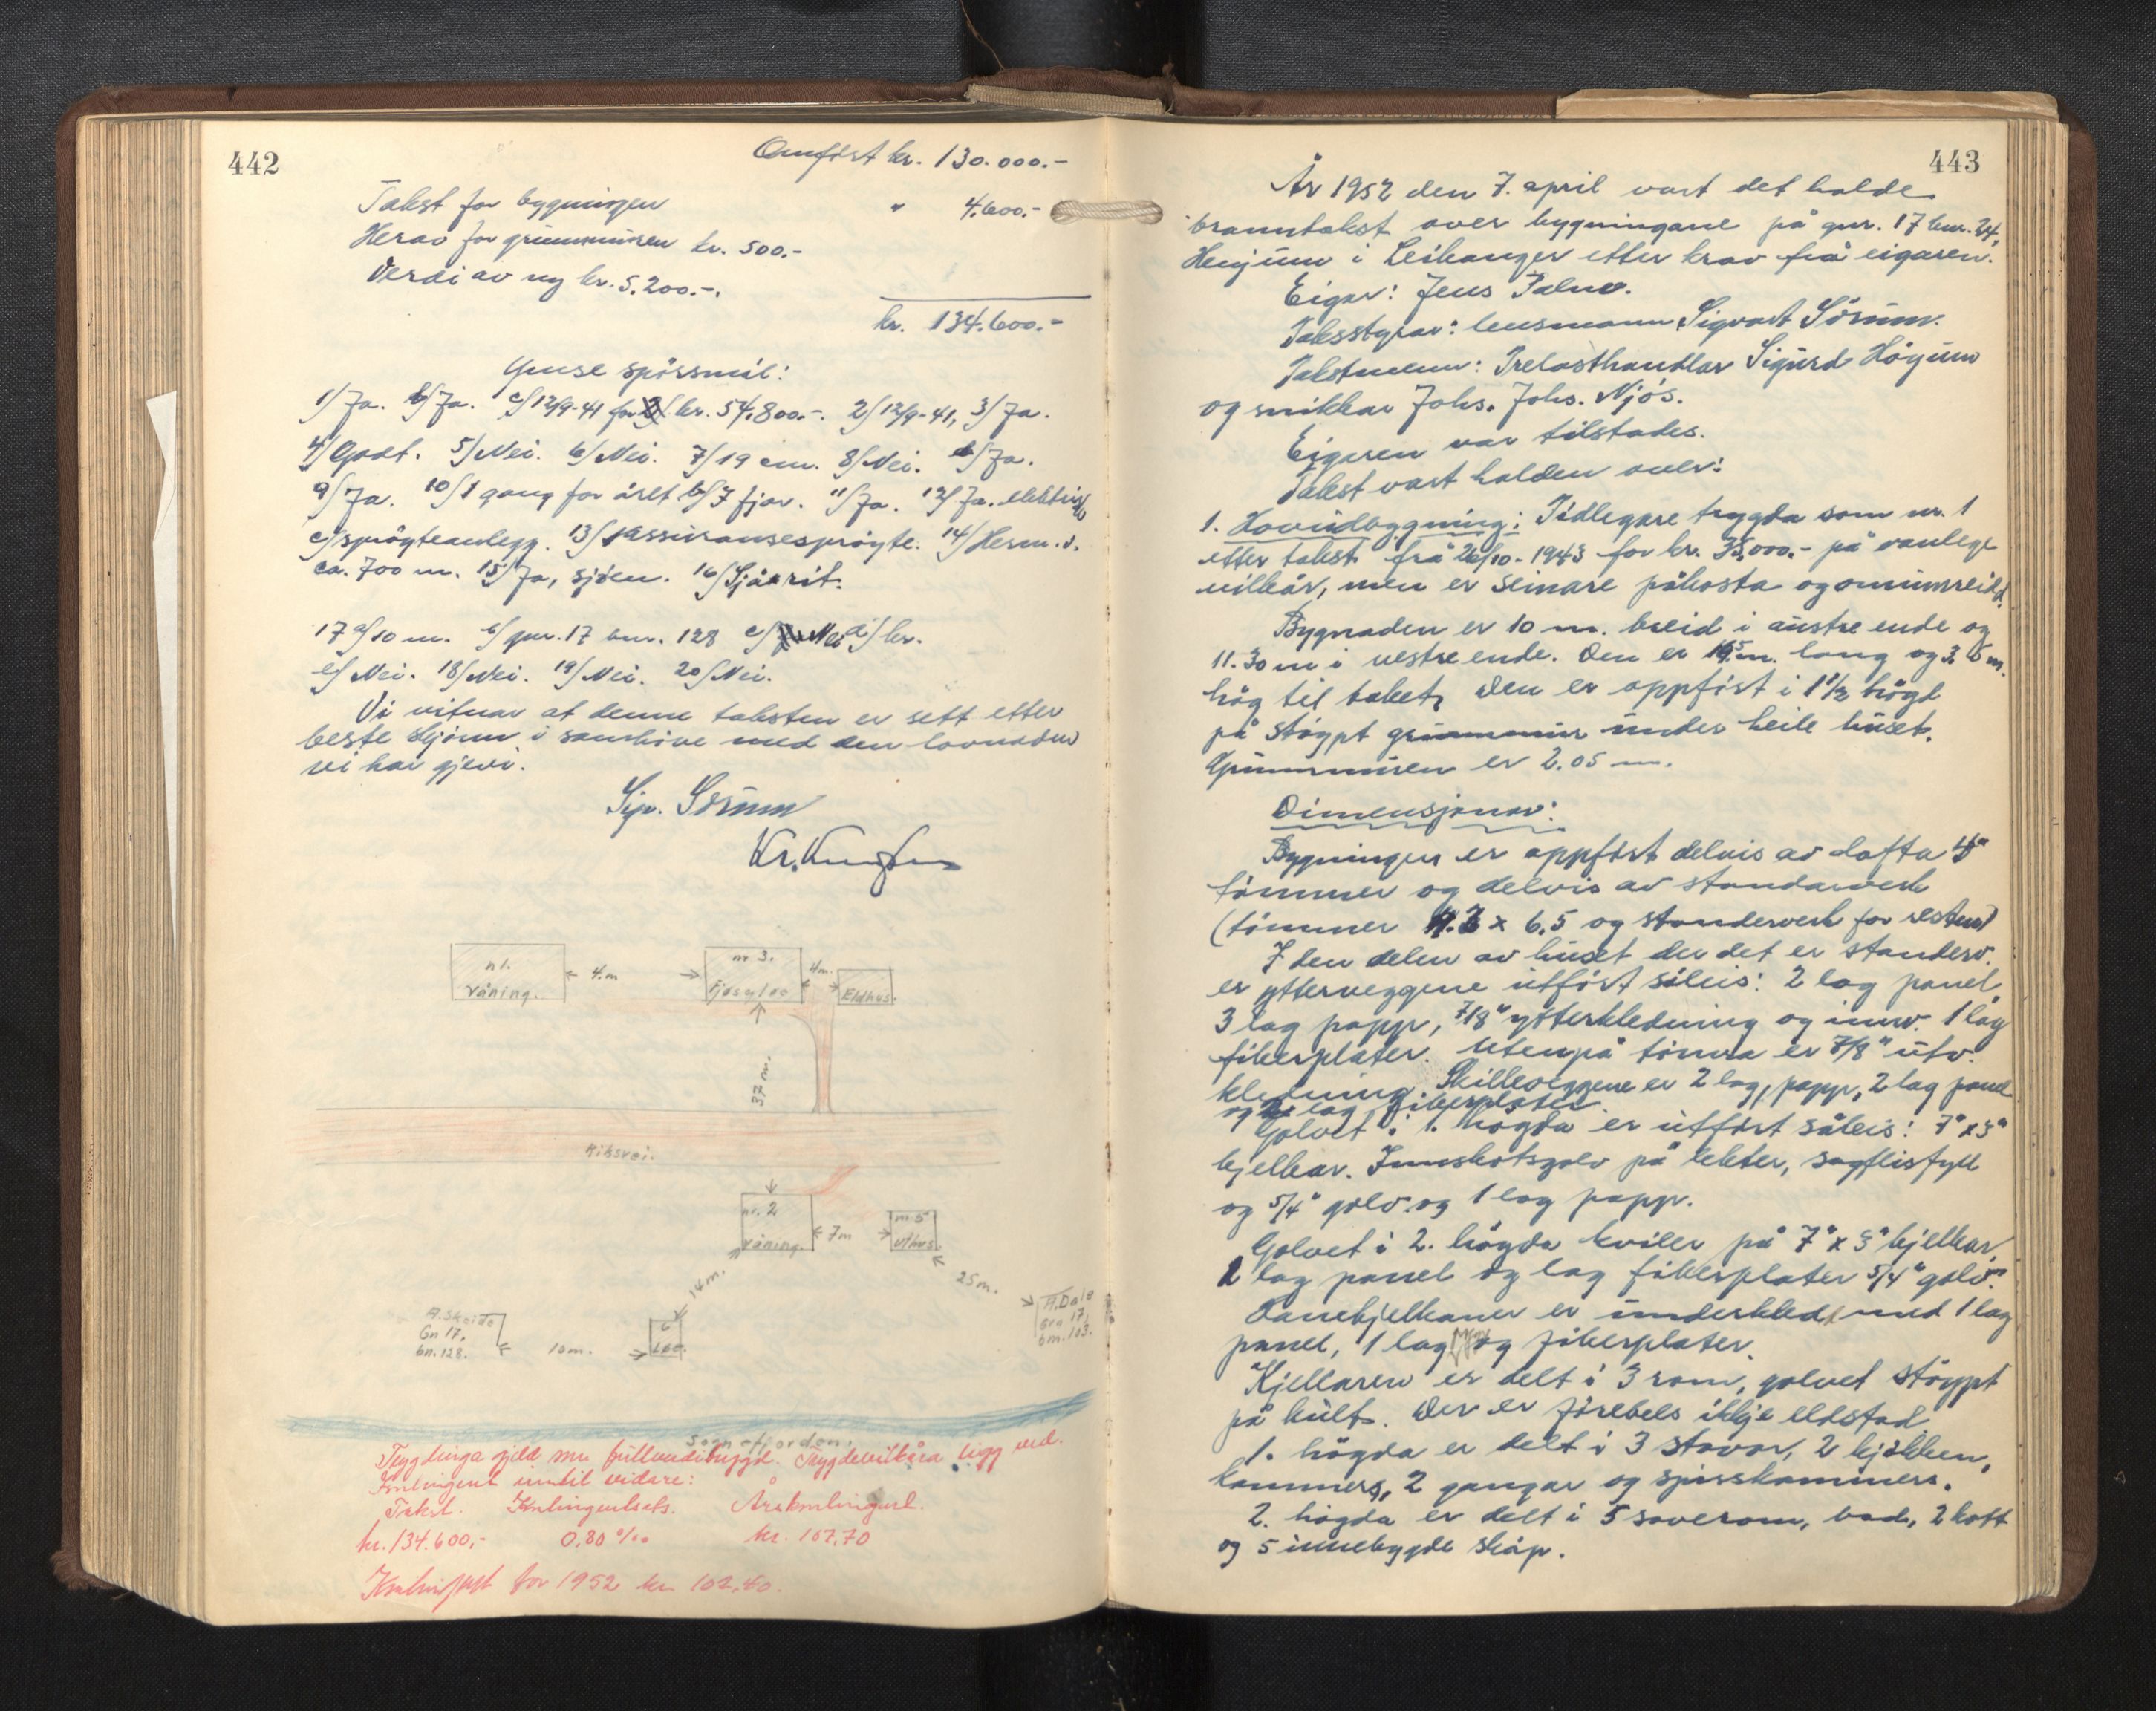 442
Omført kr. 130.000.-
Takst for bygningen " 4.600.-
Herav for grunnmuren kr. 500.-
Verdi av ny kr. 5.200.-.
kr. 134.600.-
Ymse spørsmål:
1/ Ja. b/ Ja. c/ 12/9-41 for kr. 54.800.-. 2/ 12/9-41, 3/ Ja.
4/ Godt. 5/ Nei. 6/ Nei. 7/ 19 cm. 8/ Nei. b/ Ja.
9/ Ja. 10/ 1 gang for året b/ 7 fjor. 11/ Ja. 12/ Ja. elektrisk
c/ sprøyteanlegg. 13/ Assuransesprøyte. 14/ Herm. s.
ca. 700 m. 15/ Ja, sjøen. 16/ Sjå rit.
17 a/ 10 m. b/ gnr. 17 bnr. 128 c/ Nei d/ kr.
e/ Nei. 18/ Nei. 19/ Nei. 20/ Nei.
Vi vitnar at denne taksten er sett etter
beste skjønn i samhøve med den lovnaden
vi har gjevi.
Sigv. Sørum
n 1.
Våning.
4. m
nr 3.
Fjos og løe
4 m.
Eldhus.
37 m.
Riksvei.
nr. 2
Våning.
7 m
nr 5
Uthus.
14 m.
25 m.
A. Skeide
Gn 17.
bn. 128.
10 m.
Løe.
A. Dale
Gnr 17,
bnr. 103.
Sognefjorden.
Trygdinga gjeld som fullverditrygd. Trygdevilkåra ligg ved.
Kontingent inntil vidare:
Takst. Kontingentsats. Årskontingent.
kr. 134.600,- 0,80 ‰ kr. 107,70
Kontingent for 1952 kr 102,40.
443
År 1952 den 7. april vart det halde
branntakst over bygningane på gnr. 17 bnr. 24,
Henjum i Leikanger etter krav frå eigaren.
Eigar: Jens Palmer.
Takststyrar: lensmann Sigvart Sørum.
Takstmenn: Trelasthandlar Sigurd Høyum
og snikkar Johs. Johs. Njøs.
Eigaren var tilstades.
Takst vart halden over:
1. Hovudbygning: Tidlegare trygda som nr. 1
etter takst frå 26/10-1943 for kr. 35.000.- på vanlege
vilkår, men er seinare påkosta og ominnreidd.
Bygnaden er 10 m. breid i austre ende og
11.30 m i vestre ende. Den er m. lang og m.
høg til taket. Den er oppført i 1 1/2 høgd
på støypt grunnmur under heile huset.
Grunnmuren er 2.05 m.
Dimensjonar:
Bygningen er oppført delvis av lafta 4"
tømmer og delvis av standarverk
(tømmer x 6,5 og standerverk for resten)
I den delen av huset der det er standerv.
er ytterveggene utført såleis: 2 lag panel,
3 lag papp, 7/8" ytterkledning og innv. 1 lag
fiberplater. Utenpå tømra er 7/8" utv.
kledning. Skilleveggene er 2 lag papp, 2 lag panel
og 2 lag fiberplater.
Golvet i 1. høgda er utført såleis: 7" x 3"
bjelkar. Innskotsgolv på lekter, sagflisfyll
og 5/4" golv og 1 lag papp.
Golvet i 2. høgda kviler på 7" x 3" bjelkar,
1 lag panel og lag fiberplater 5/4" golv.
Tanebjelkaner er underkledt med 1 lag
panel, 1 lag papp og fiberplater.
Kjellaren er delt i 3 rom, golvet støypt
på kult. Der er førebels ikkje eldstad.
1. høgda er delt i 3 stovor, 2 kjøkken,
kammers, 2 gangar og spisskammers.
2. høgda er delt i 5 soverom, bad, 2 kott
og 5 innebygde skåp.